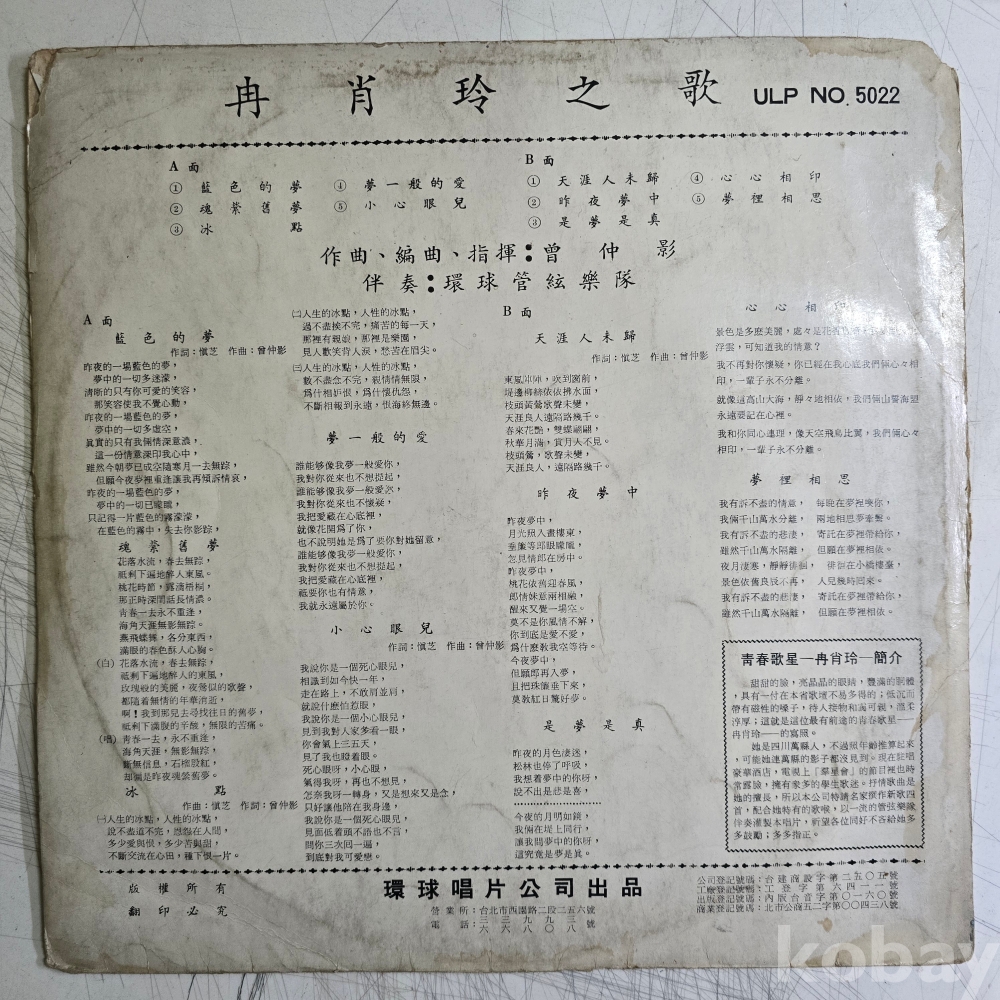 冉肖玲之歌 ULP NO. 5022
A面
① 藍色的夢 ④ 夢一般的愛
② 魂縈舊夢 ⑤ 小心眼兒
③ 冰點
B面
① 天涯人未歸 ④ 心心相印
② 昨夜夢中 ⑤ 夢裡相思
③ 是夢是真
作曲、編曲、指揮：曾仲影
伴奏：環球管絃樂隊
A面
藍色的夢
作詞：愼芝 作曲：曾仲影
昨夜的一場藍色的夢，
夢中的一切多迷濛，
清晰的只有你可愛的笑容，
那笑容使我不覺心動，
昨夜的一場藍色的夢，
夢中的一切多虛空，
眞實的只有我倆情深意濃，
這一份情意深印我心中，
雖然今朝夢已成空隨寒月一去無踪，
但願今夜夢裡重逢讓我再傾訴情衷，
昨夜的一場藍色的夢，
夢中的一切已朦朧，
只記得一片藍色的霧濛濛，
在藍色的霧中，失去你影踪，
魂縈舊夢
花落水流，春去無踪，
祗剩下遍地醉人東風，
桃花時節，露滴梧桐，
那正時深閨話長情濃。
靑春一去永不重逢，
海角天涯無影無踪，
燕飛蝶舞，各分東西，
滿眼的春色酥人心胸。
(白) 花落水流，春去無踪，
祗剩下遍地醉人的東風，
玫瑰般的美麗，夜鶯似的歌聲，
都隨着無情的年華消逝，
啊！我到那兒去尋找往日的舊夢，
祗剩下滿腹的辛酸，無限的苦痛。
(唱) 靑春一去，永不重逢，
海角天涯，無影無踪，
斷無信息，石榴殷紅，
却偏是昨夜魂縈舊夢。
冰點
作曲：愼芝 作詞：曾仲影
㈠人生的冰點，人性的冰點，
說不盡道不完，恩怨在人間，
多少愛與恨，多少苦與甜，
不斷交流在心田，種下恨一片。
㈡人生的冰點，人性的冰點，
過不盡挨不完，痛苦的每一天，
那裡有親娘，那裡是樂園，
見人歡笑背人淚，愁苦在眉尖。
㈢人生的冰點，人性的冰點，
數不盡念不完，親情情無限，
爲什相訴恨，爲什懷仇怨，
不斷相報到永遠，恨海終無邊。
夢一般的愛
誰能够像我夢一般愛你，
我對你從來也不想提起，
誰能够像我夢一般愛您，
我對你從來也不懷疑，
我把愛藏在心底裡，
就像花開爲了你，
也不說明她是爲了要你對她留意，
誰能够像我夢一般愛你，
我對你從來也不想提起，
我把愛藏在心底裡，
祗要你也有情意，
我就永遠屬於你。
小心眼兒
作詞：愼芝 作曲：曾仲影
我說你是一個死心眼兒，
相識到如今快一年，
走在路上，不敢肩並肩，
就說什麽怕惹眼，
我說你是一個小心眼兒，
見到我對人家多看一眼，
你會氣上三五天，
見了我也瞪着眼。
死心眼呀，小心眼，
氣得我呀，再也不想見，
怎奈我呀一轉身，又是想來又是念，
只好讓他陪在我身邊，
我說你是一個死心眼兒，
見面低着頭不語也不言，
問你三次回一遍，
到底對我可愛戀。
B面
天涯人未歸
作詞：愼芝 作曲：曾仲影
東風陣陣，吹到窗前，
堤邊柳絲依依拂水面，
枝頭黃鶯歌聲未變，
天涯良人遠隔路幾千。
春來花艶，雙蝶翩翩，
秋華月滿，賞月人不見。
枝頭鶯，歌聲未變，
天涯良人，遠隔路幾千。
昨夜夢中
昨夜夢中，
月光照入畫樓東，
垂簾等郎眼朦朧，
怎見情郎在房中。
昨夜夢中，
桃花依舊迎春風，
郎情妹意兩相融，
醒來又覺一場空。
莫不是你風情不解，
你到底是愛不愛，
爲什麽教我空等待。
今夜夢中，
但願郎再入夢，
且把珠簾垂下來，
莫教紅日驚好夢。
是夢是真
昨夜的月色淒迷，
松林也停了呼吸，
我想着夢中的你呀，
說不出是悲是喜，
今夜的月明如鏡，
我倆在堤上同行，
讓我問夢中的你呀，
這究竟是夢是眞。
心心相印
景色是多麽美麗，處々是花香
浮雲，可知道我的情意？
我不再對你懷疑，你已經在我心底我們倆心々相
印，一輩子永不分離。
就像這高山大海，靜々地相依，我們倆山誓海盟
永遠要記在心裡。
我和你同心連理，像天空飛鳥比翼，我們倆心々
相印，一輩子永不分離。
夢裡相思
我有訴不盡的情意， 每晚在夢裡陳你，
我倆千山萬水分離， 兩地相思夢牽繫。
我有訴不盡的悲淒， 寄託在夢裡帶給你，
雖然千山萬水隔離， 但願在夢裡相依。
夜月淒寒，靜靜徘徊， 徘徊在小橋樓臺，
景色依舊良辰不再， 人兒幾時回來。
我有訴不盡的悲淒， 寄託在夢裡帶給你，
雖然千山萬水隔離， 但願在夢裡相依。
靑春歌星—冉肖玲—簡介
甜甜的臉，亮晶晶的眼睛，豐滿的胴體
，具有一付在本省歌壇不易多得的；低沉而
帶有磁性的嗓子，待人接物和藹可親，溫柔
淳厚；這就是這位最有前途的靑春歌星——
冉肖玲——的寫照。
她是四川萬縣人，不過照年齡推算起來
，可能她連萬縣的影子都沒見到。現在駐唱
豪華酒店，電視上「羣星會」的節目裡也時
常露臉，擁有衆多的學生歌迷。抒情歌曲是
她的擅長，所以本公司特請名家撰作新歌四
首，配合她特有的歌喉，以一流的管弦樂隊
伴奏灌製本唱片，祈望各位同好不吝給她多
多鼓勵；多多指正。
版權所有
翻印必究
環球唱片公司出品
營業所：台北市西園路二段二五六號
電話：三三九九三 六六八〇八號
公司登記號碼：台建商設字第二五〇五號
工廠登記號碼：工登字第六四一一號
出版登記號碼：內版台音字第〇一六〇號
商業登記號碼：北市公商五二字第〇〇四三八號
kobay